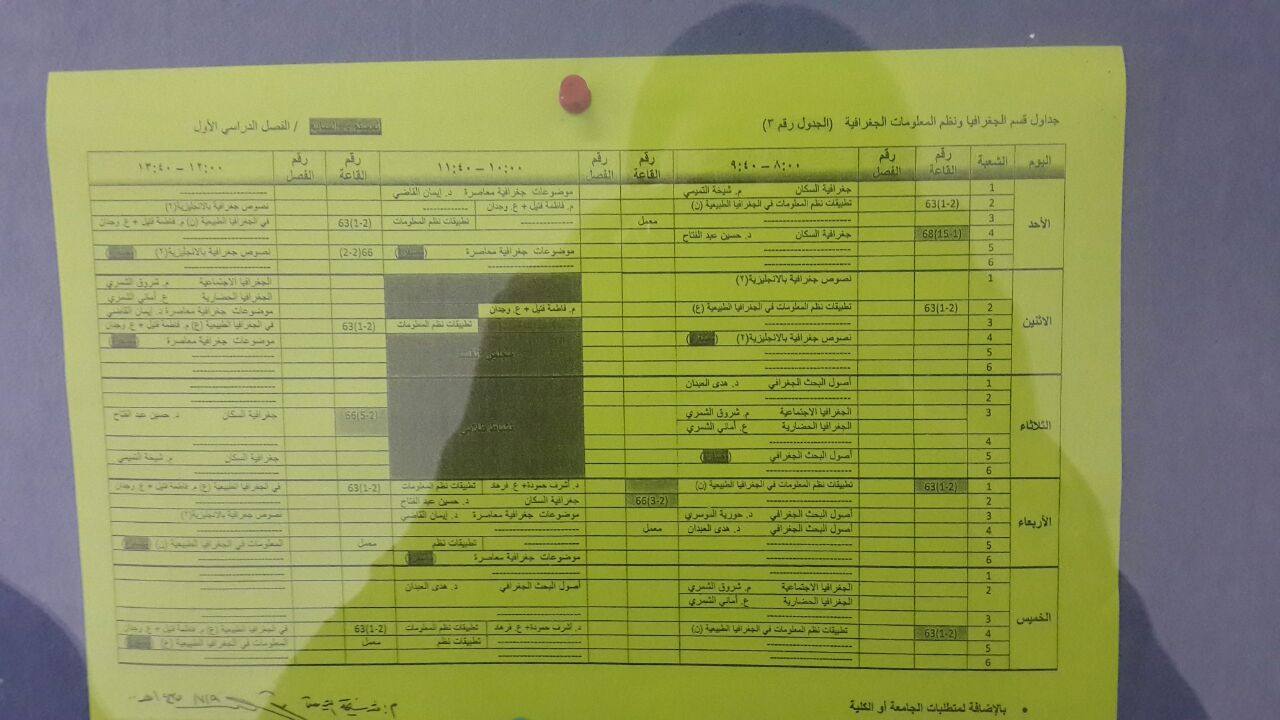 جداول قسم الجغرافيا ونظم المعلومات الجغرافية (الجدول رقم ٣) / الفصل الدراسي الأول
اليوم الشعبة رقم القاعة رقم الفصل ٨:٠٠ – ٩:٤٠ رقم القاعة رقم الفصل ١٠:٠٠ – ١١:٤٠ رقم القاعة رقم الفصل ١٢:٠٠ – ١٣:٤٠
الأحد
1 جغرافية السكان م. شيحة التميمي موضوعات جغرافية معاصرة د. إيمان القاضي ----------------
2 63(1-2) تطبيقات نظم المعلومات في الجغرافيا الطبيعية (ن) م. فاطمة فتيل + ع. وجدان ---------------- نصوص جغرافية بالانجليزية(٢)
3 ---------------- معمل ---------------- تطبيقات نظم المعلومات 63(1-2) في الجغرافيا الطبيعية (ن) م. فاطمة فتيل + ع. وجدان
4 68(15-1) جغرافية السكان د. حسين عبد الفتاح ---------------- ----------------
5 ---------------- موضوعات جغرافية معاصرة 66(2-2) نصوص جغرافية بالانجليزية(٢)
6 ---------------- ---------------- ----------------
الاثنين
1 نصوص جغرافية بالانجليزية(٢) الجغرافيا الاجتماعية م. شروق الشمري
الجغرافيا الحضارية ع. أماني الشمري
2 63(1-2) تطبيقات نظم المعلومات في الجغرافيا الطبيعية (ع) م. فاطمة فتيل + ع. وجدان موضوعات جغرافية معاصرة د. إيمان القاضي
3 ---------------- تطبيقات نظم المعلومات 63(1-2) في الجغرافيا الطبيعية (ع) م. فاطمة فتيل + ع. وجدان
4 نصوص جغرافية بالانجليزية(٢) موضوعات جغرافية معاصرة
5 ---------------- ----------------
6 ---------------- ----------------
الثلاثاء
1 أصول البحث الجغرافي د. هدى العبدان ----------------
2 ---------------- ----------------
3 الجغرافيا الاجتماعية م. شروق الشمري 66(5-2) جغرافية السكان د. حسين عبد الفتاح
الجغرافيا الحضارية ع. أماني الشمري
4 ---------------- ----------------
5 أصول البحث الجغرافي جغرافية السكان م. شيحة التميمي
6 ---------------- ----------------
الأربعاء
1 63(1-2) تطبيقات نظم المعلومات في الجغرافيا الطبيعية (ن) د. أشرف حمودة+ ع فرهاد تطبيقات نظم المعلومات 63(1-2) في الجغرافيا الطبيعية (ع) م. فاطمة فتيل + ع. وجدان
2 ---------------- 66(3-2) جغرافية السكان د. حسين عبد الفتاح ----------------
3 أصول البحث الجغرافي د. حورية الدوسري موضوعات جغرافية معاصرة د. إيمان القاضي نصوص جغرافية بالانجليزية(٢)
4 أصول البحث الجغرافي د. هدى العبدان معمل ---------------- ----------------
5 ---------------- ---------------- تطبيقات نظم معمل المعلومات في الجغرافيا الطبيعية (ن)
6 ---------------- موضوعات جغرافية معاصرة ----------------
الخميس
1 ---------------- ---------------- ----------------
2 الجغرافيا الاجتماعية م. شروق الشمري أصول البحث الجغرافي د. هدى العبدان ----------------
الجغرافيا الحضارية ع. أماني الشمري
3 ---------------- ---------------- ----------------
4 63(1-2) تطبيقات نظم المعلومات في الجغرافيا الطبيعية (ن) د. أشرف حمودة+ ع فرهاد تطبيقات نظم المعلومات 63(1-2) في الجغرافيا الطبيعية (ع) م. فاطمة فتيل + ع. وجدان
5 ---------------- ---------------- تطبيقات نظم معمل المعلومات في الجغرافيا الطبيعية (ع)
6 ---------------- ---------------- ----------------
• بالإضافة لمتطلبات الجامعة أو الكلية